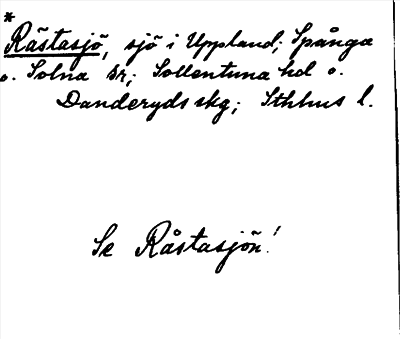 *
Råstasjö, sjö i Uppland; Spånga
o. Solna sr; Sollentuna hd o.
Danderyds skg; Sthlms l.
Se Råstasjön!